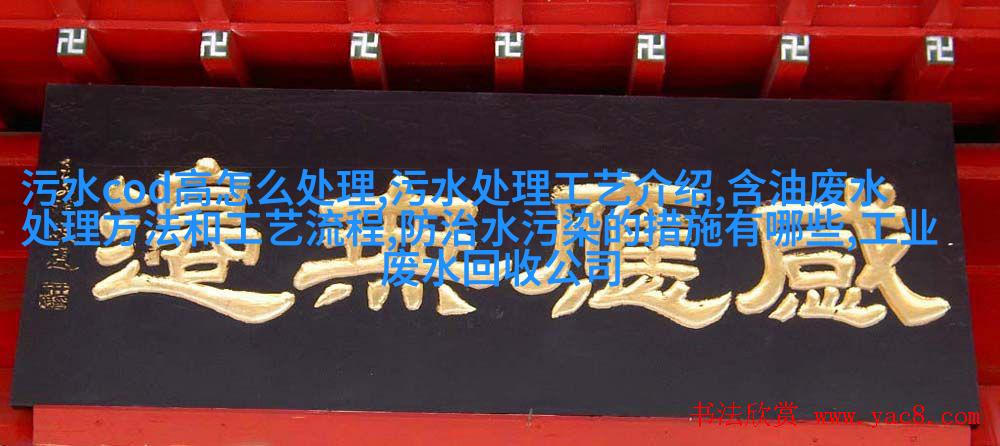 污水cod高怎么处理,污水处理工艺介绍,含油废水
处理方法和工艺流程,防治水污染的措施有哪些,工业
废水回收公司
感應無遮
书法欣赏 www.yac8.com